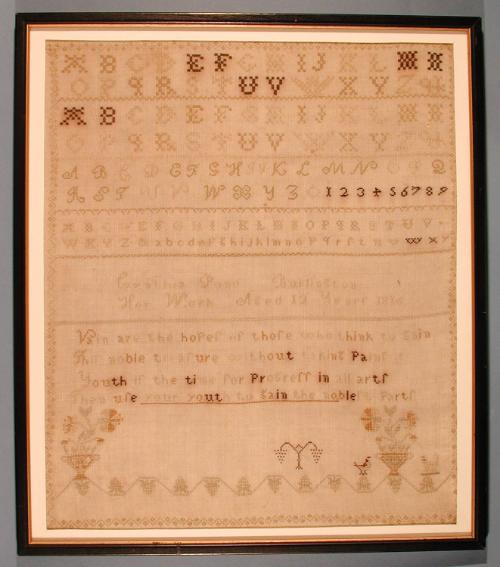 A B C D E F G H I J K L M N
O P Q R S T U V W X Y Z
A B C D E F G H I J K L M N
O P Q R S T U V W X Y Z
A B C D E F G H I K L M N O P Q
R S T U V W X Y Z 1 2 3 4 5 6 7 8 9
A B C D E F G H I J K L M N O P Q R S T U V
W X Y Z & a b c d e f g h i j k l m n o p q r ſ t u v w x y
Burlington
Her Work Aged 12 Years
Vain are the hopeſ of thoſe who think to Gain
Thiſ noble treaſure without taking Painſ
Youth iſ the time for Progreſſ in all artſ
Then uſe your youth to Gain the nobleſt Partſ